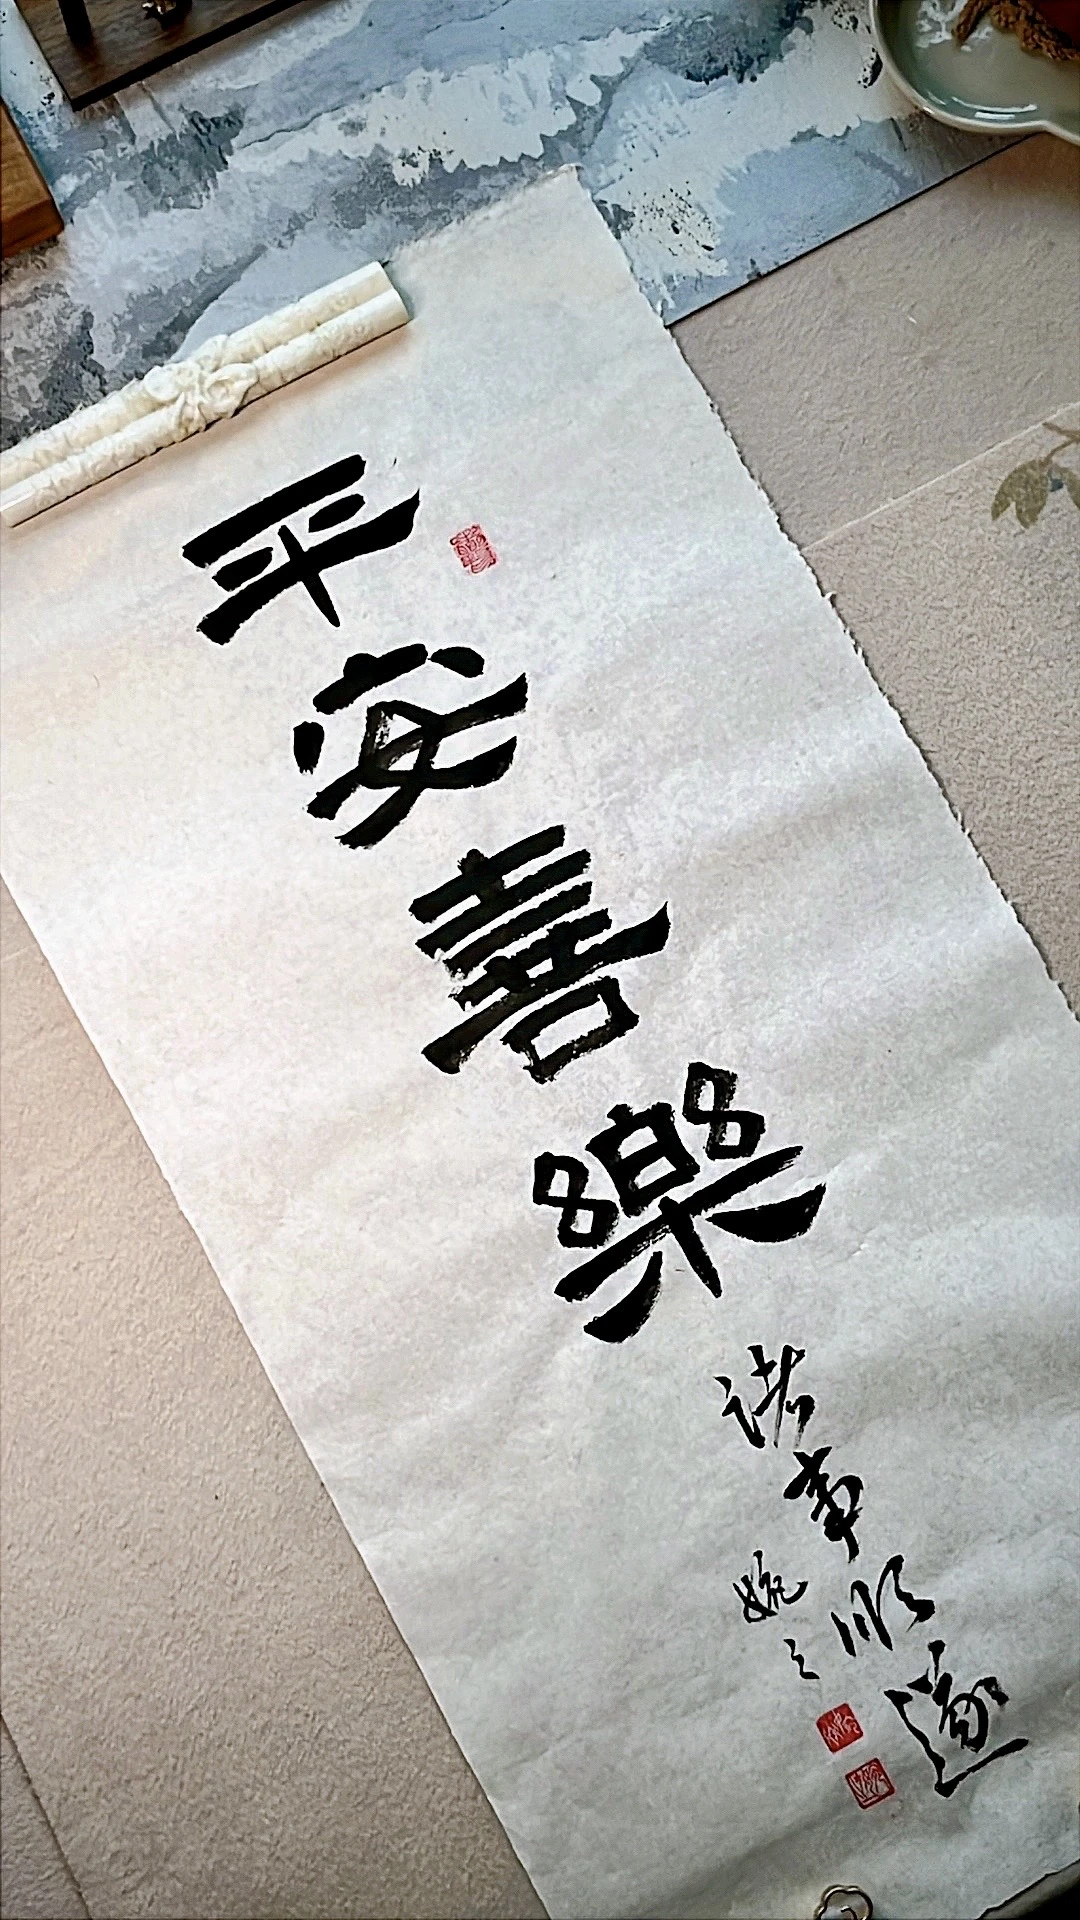 平安喜樂
诸事顺遂
婉之